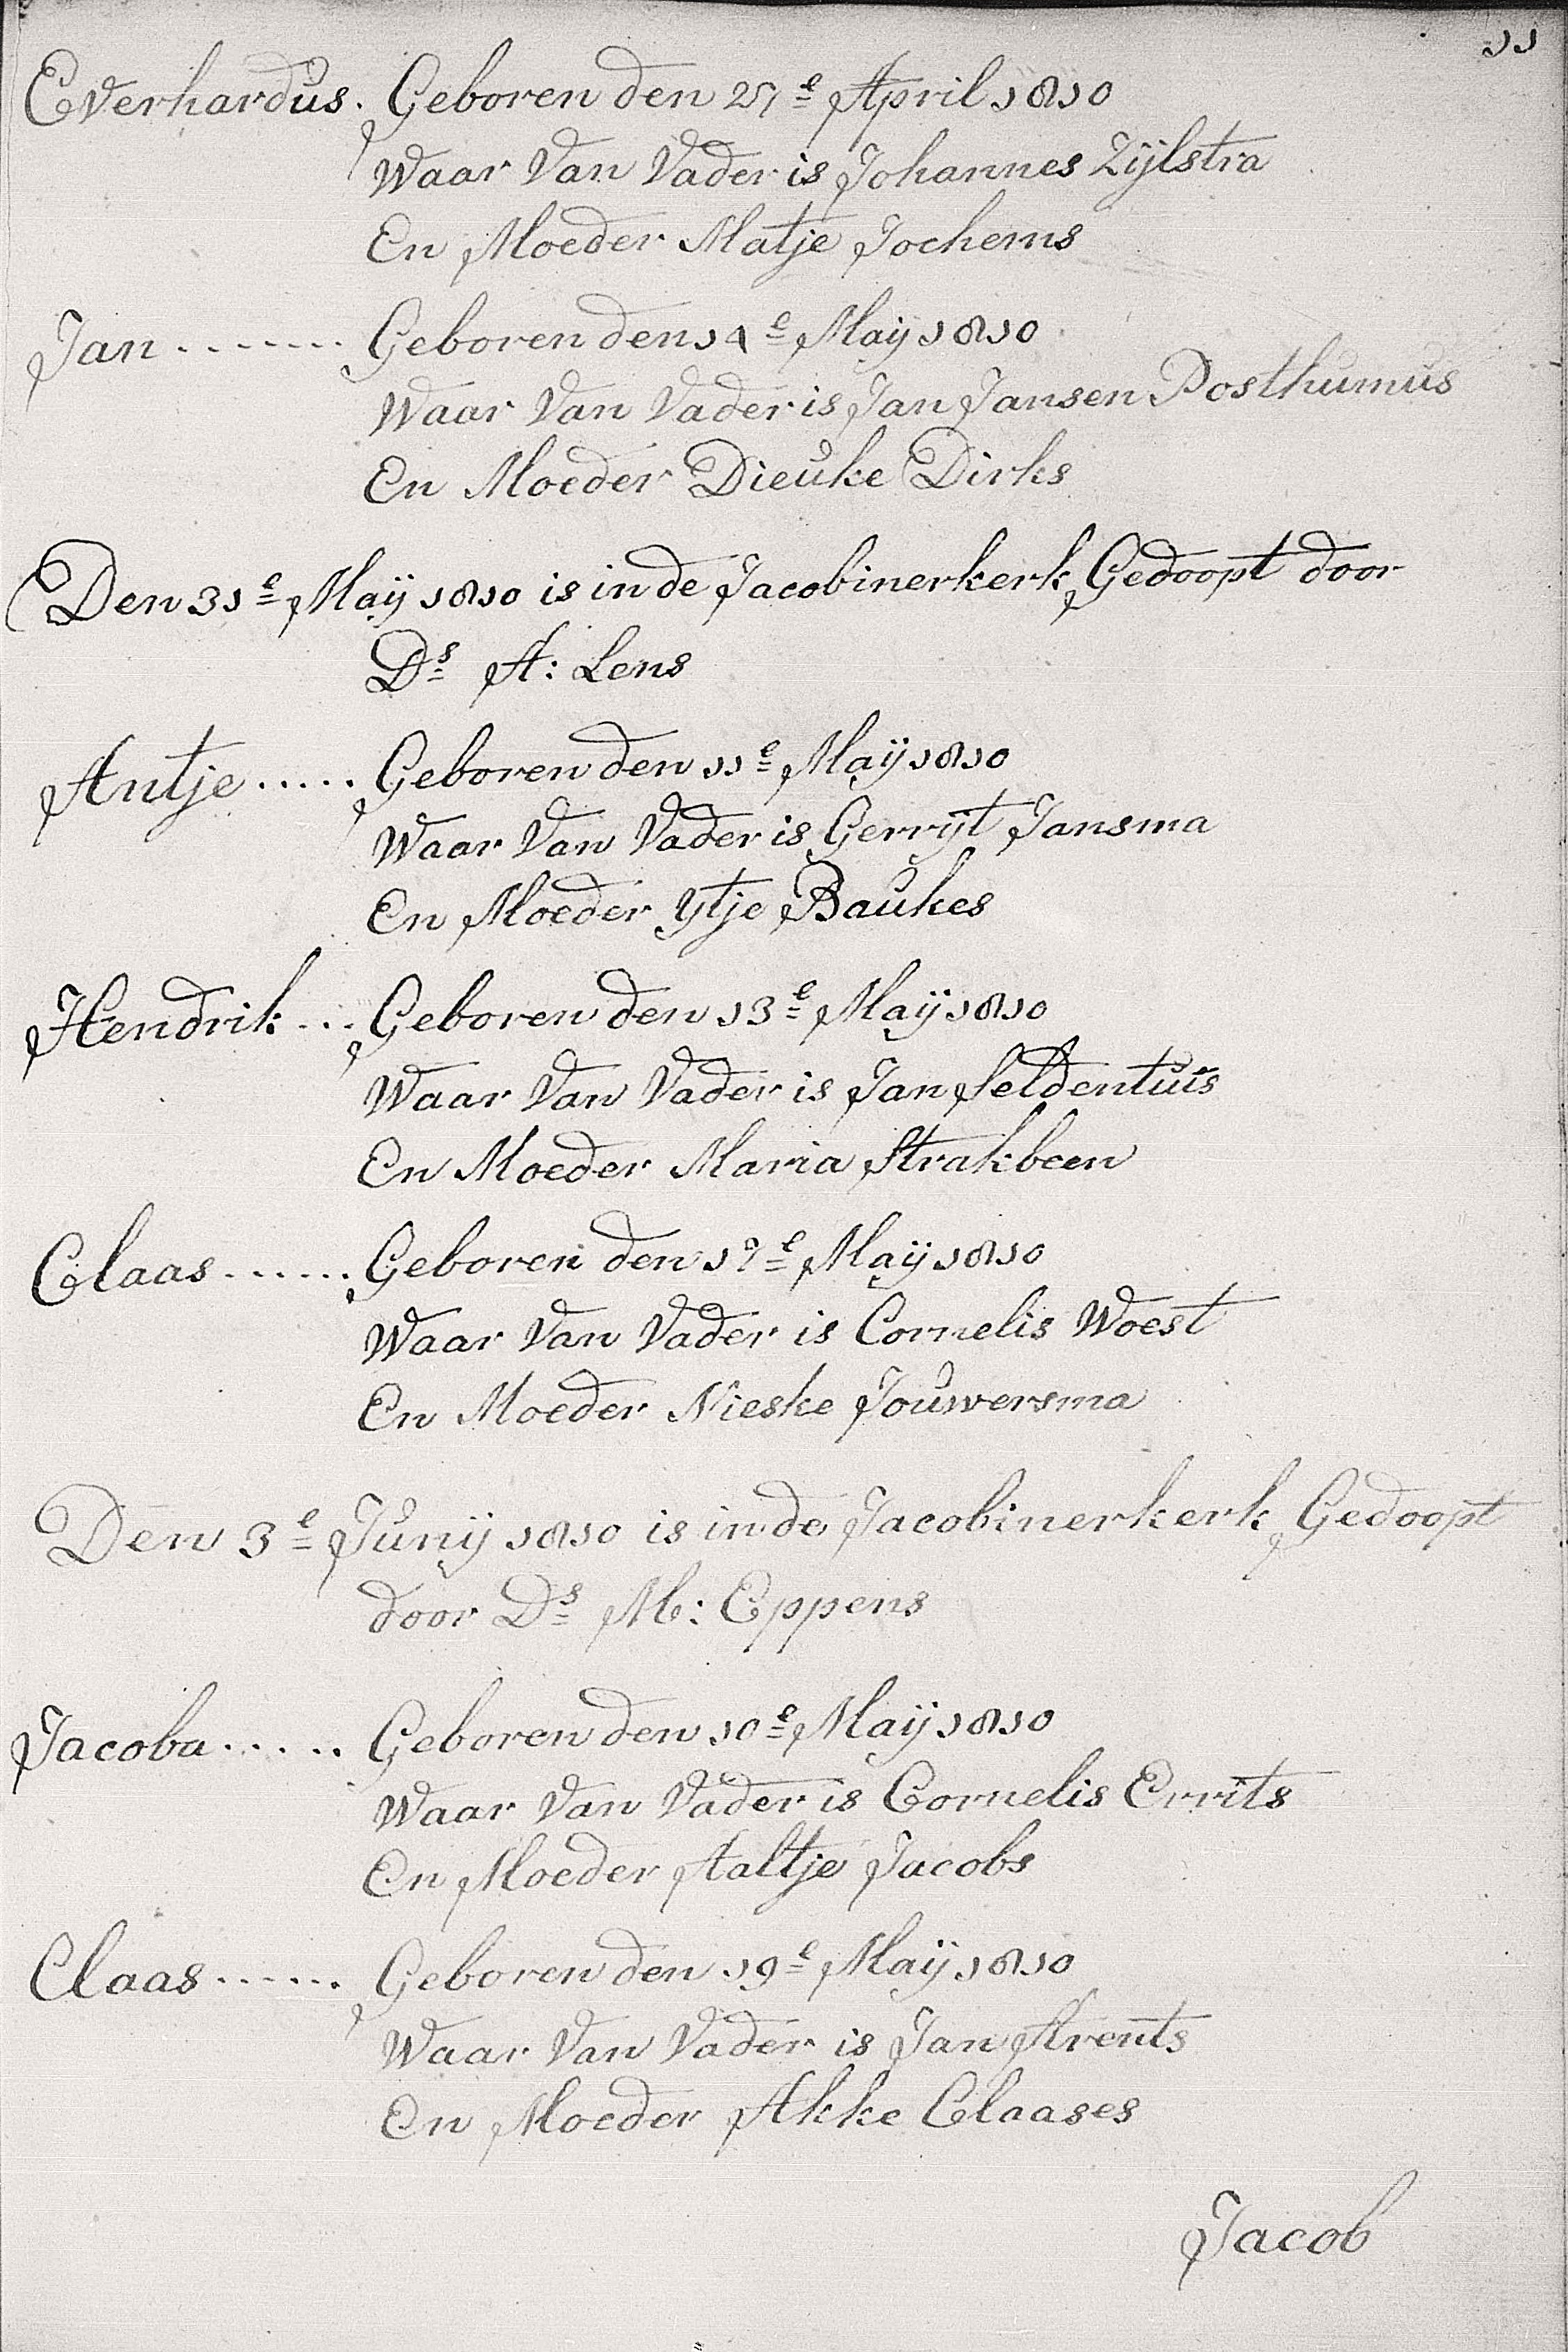 11
Everhardus. Geboren den 27e April 1810
Waar Van Vader is Johannes Zijlstra
En Moeder Matje Jochems
Jan ....... Geboren den 14e Maij 1810
Waar Van Vader is Jan Jansen Posthumus
En Moeder Dieuke Dirks
Den 31e Maij 1810 is in de Jacobinerkerk Gedoopt door
Ds A: Lens
Antje ..... Geboren den 11e Maij 1810
Waar Van Vader is Gerrijt Jansma
En Moeder Ytje Baukes
Hendrik ... Geboren den 13e Maij 1810
Waar Van Vader is Jan Seldentuis
En Moeder Maria Strakbeen
Claas ...... Geboren den 17e Maij 1810
Waar Van Vader is Cornelis Woest
En Moeder Nieske Jouwersma
Den 3e Junij 1810 is in de Jacobinerkerk Gedoopt
door Ds M: Eppens
Jacoba ..... Geboren den 10e Maij 1810
Waar Van Vader is Cornelis Errits
En Moeder Aaltje Jacobs
Claas ...... Geboren den 19e Maij 1810
Waar Van Vader is Jan Arents
En Moeder Akke Claases
Jacob